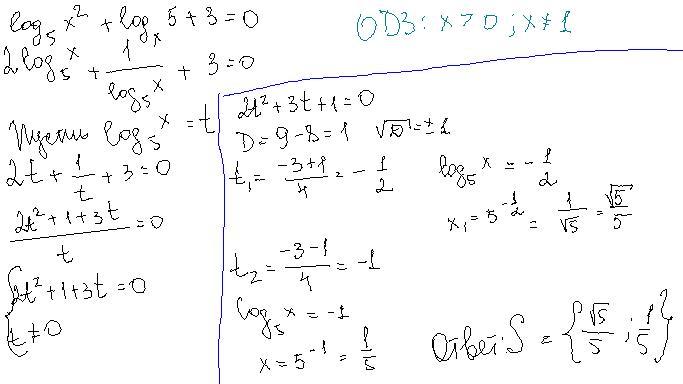 log₅ x² + logₓ 5 + 3 = 0
ОДЗ: x > 0 ; x ≠ 1
2log₅ x + 1/(log₅ x) + 3 = 0
Пусть log₅ x = t
2t + 1/t + 3 = 0
(2t² + 1 + 3t)/t = 0
{ 2t² + 1 + 3t = 0
t ≠ 0
2t² + 3t + 1 = 0
D = 9 - 8 = 1 √D = ± 1
t₁ = (-3+1)/4 = - 1/2
log₅ x = - 1/2
x₁ = 5^(-1/2) = 1/√5 = √5/5
t₂ = (-3-1)/4 = -1
log₅ x = -1
x = 5⁻¹ = 1/5
Ответ: S = {√5/5 ; 1/5}